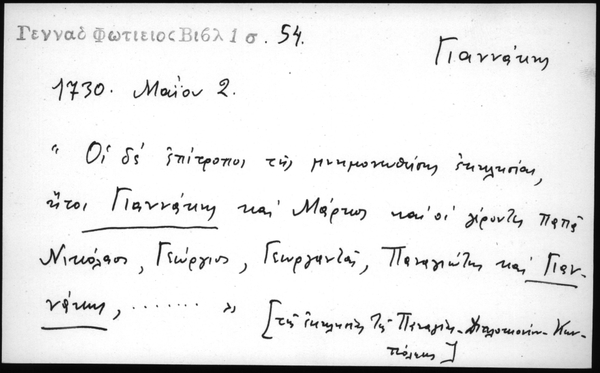 Γενναδ Φωτιειος Βιβλ 1 σ. 54.
Γιαννάκης
1730. Μαΐου 2.
" Οἱ δέ ἐπίτροποι τῆς μνημονευθείσης ἐκκλησίας,
ἤτοι Γιαννάκης καί Μάρκος καί οἱ γέροντες παπᾶ
Νικόλαος, Γεώργιος, Γεωργαντᾶς, Παναγιώτης καί Γιαν-
νάκης, ....... "
[τῆς ἐκκλησίας τῆς Παναγίας - Κων-
πόλεως]